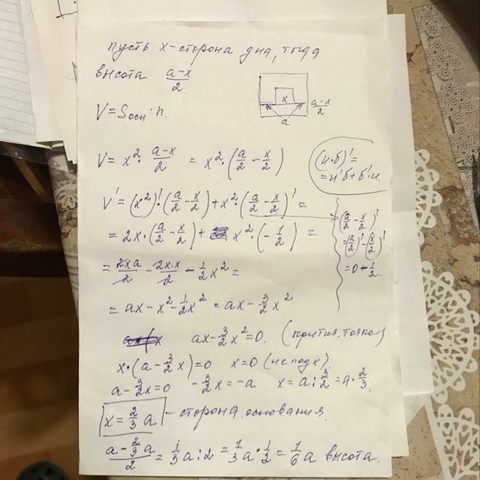 пусть x-сторона дна, тогда
высота (a-x)/2
x
(a-x)/2
a
V = Sосн · h.
V = x² · (a-x)/2 = x² · (a/2 - x/2)
(u·b)' =
= u'b + b'u.
V' = (x²)' · (a/2 - x/2) + x² · (a/2 - x/2)' =
= 2x · (a/2 - x/2) + x² · (-1/2) =
(a/2 - x/2)'
= (a/2)' - (x/2)'
= 0 - 1/2.
= 2xa/2 - 2x·x/2 - 1/2 x² =
= ax - x² - 1/2 x² = ax - 3/2 x²
ax - 3/2 x² = 0.
x · (a - 3/2 x) = 0 x = 0 (не подх)
a - 3/2 x = 0 -3/2 x = -a x = a : 3/2 = a · 2/3.
x = 2/3 a - сторона основания.
(a - 2/3 a)/2 = 1/3 a : 2 = 1/3 a · 1/2 = 1/6 a высота.